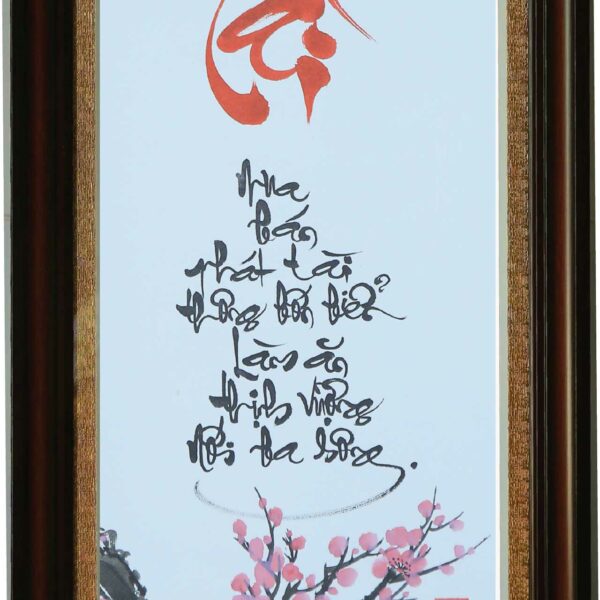 Mua
bán
phát tài
thông bốn biển
Làm ăn
thịnh vượng
nối ba sông.